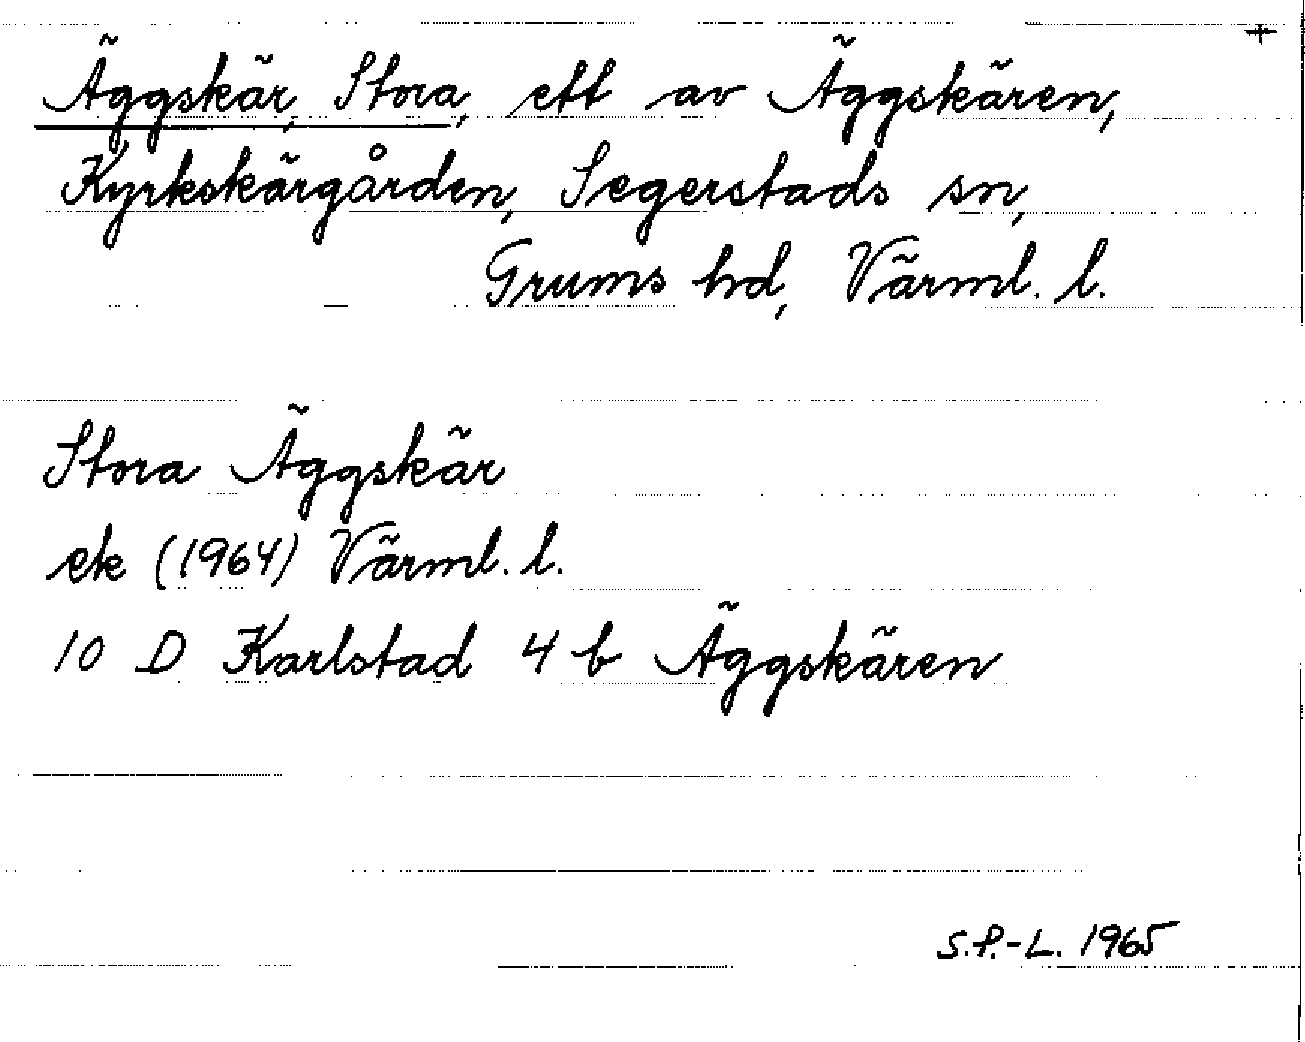 +
Äggskär, Stora, ett av Äggskären,
Kyrkskärgården, Segerstads sn,
Grums hd, Värml. l.
Stora Äggskär
ek (1964) Värml. l.
10 D Karlstad 4 b Äggskären
S.P.-L. 1965